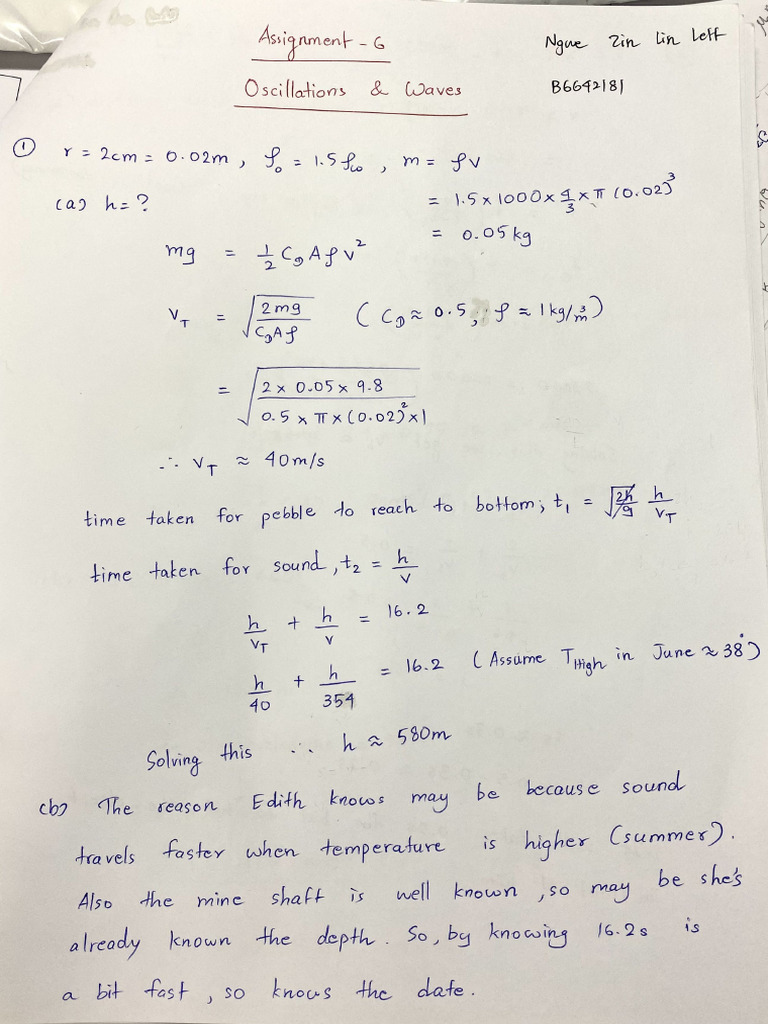 Assignment - 6
Ngue Zin Lin Leff
Oscillations & Waves
B6642181
① r = 2cm = 0.02m , ρ₀ = 1.5 ρω , m = ρv
(a) h = ?
= 1.5 x 1000 x 4/3 x π (0.02)³
= 0.05 kg
mg = 1/2 C_D A ρ v²
V_T = √(2mg / C_D A ρ) ( C_D ≈ 0.5 , ρ ≈ 1 kg/m³ )
= √(2 x 0.05 x 9.8 / 0.5 x π x (0.02)² x 1)
∴ V_T ≈ 40 m/s
time taken for pebble to reach to bottom; t₁ = h/V_T
time taken for sound , t₂ = h/v
h/V_T + h/v = 16.2
h/40 + h/354 = 16.2 ( Assume T_High in June ≈ 38° )
Solving this ∴ h ≈ 580m
(b) The reason Edith knows may be because sound
travels faster when temperature is higher (summer).
Also the mine shaft is well known , so may be she's
already known the depth . So , by knowing 16.2s is
a bit fast , so knows the date .